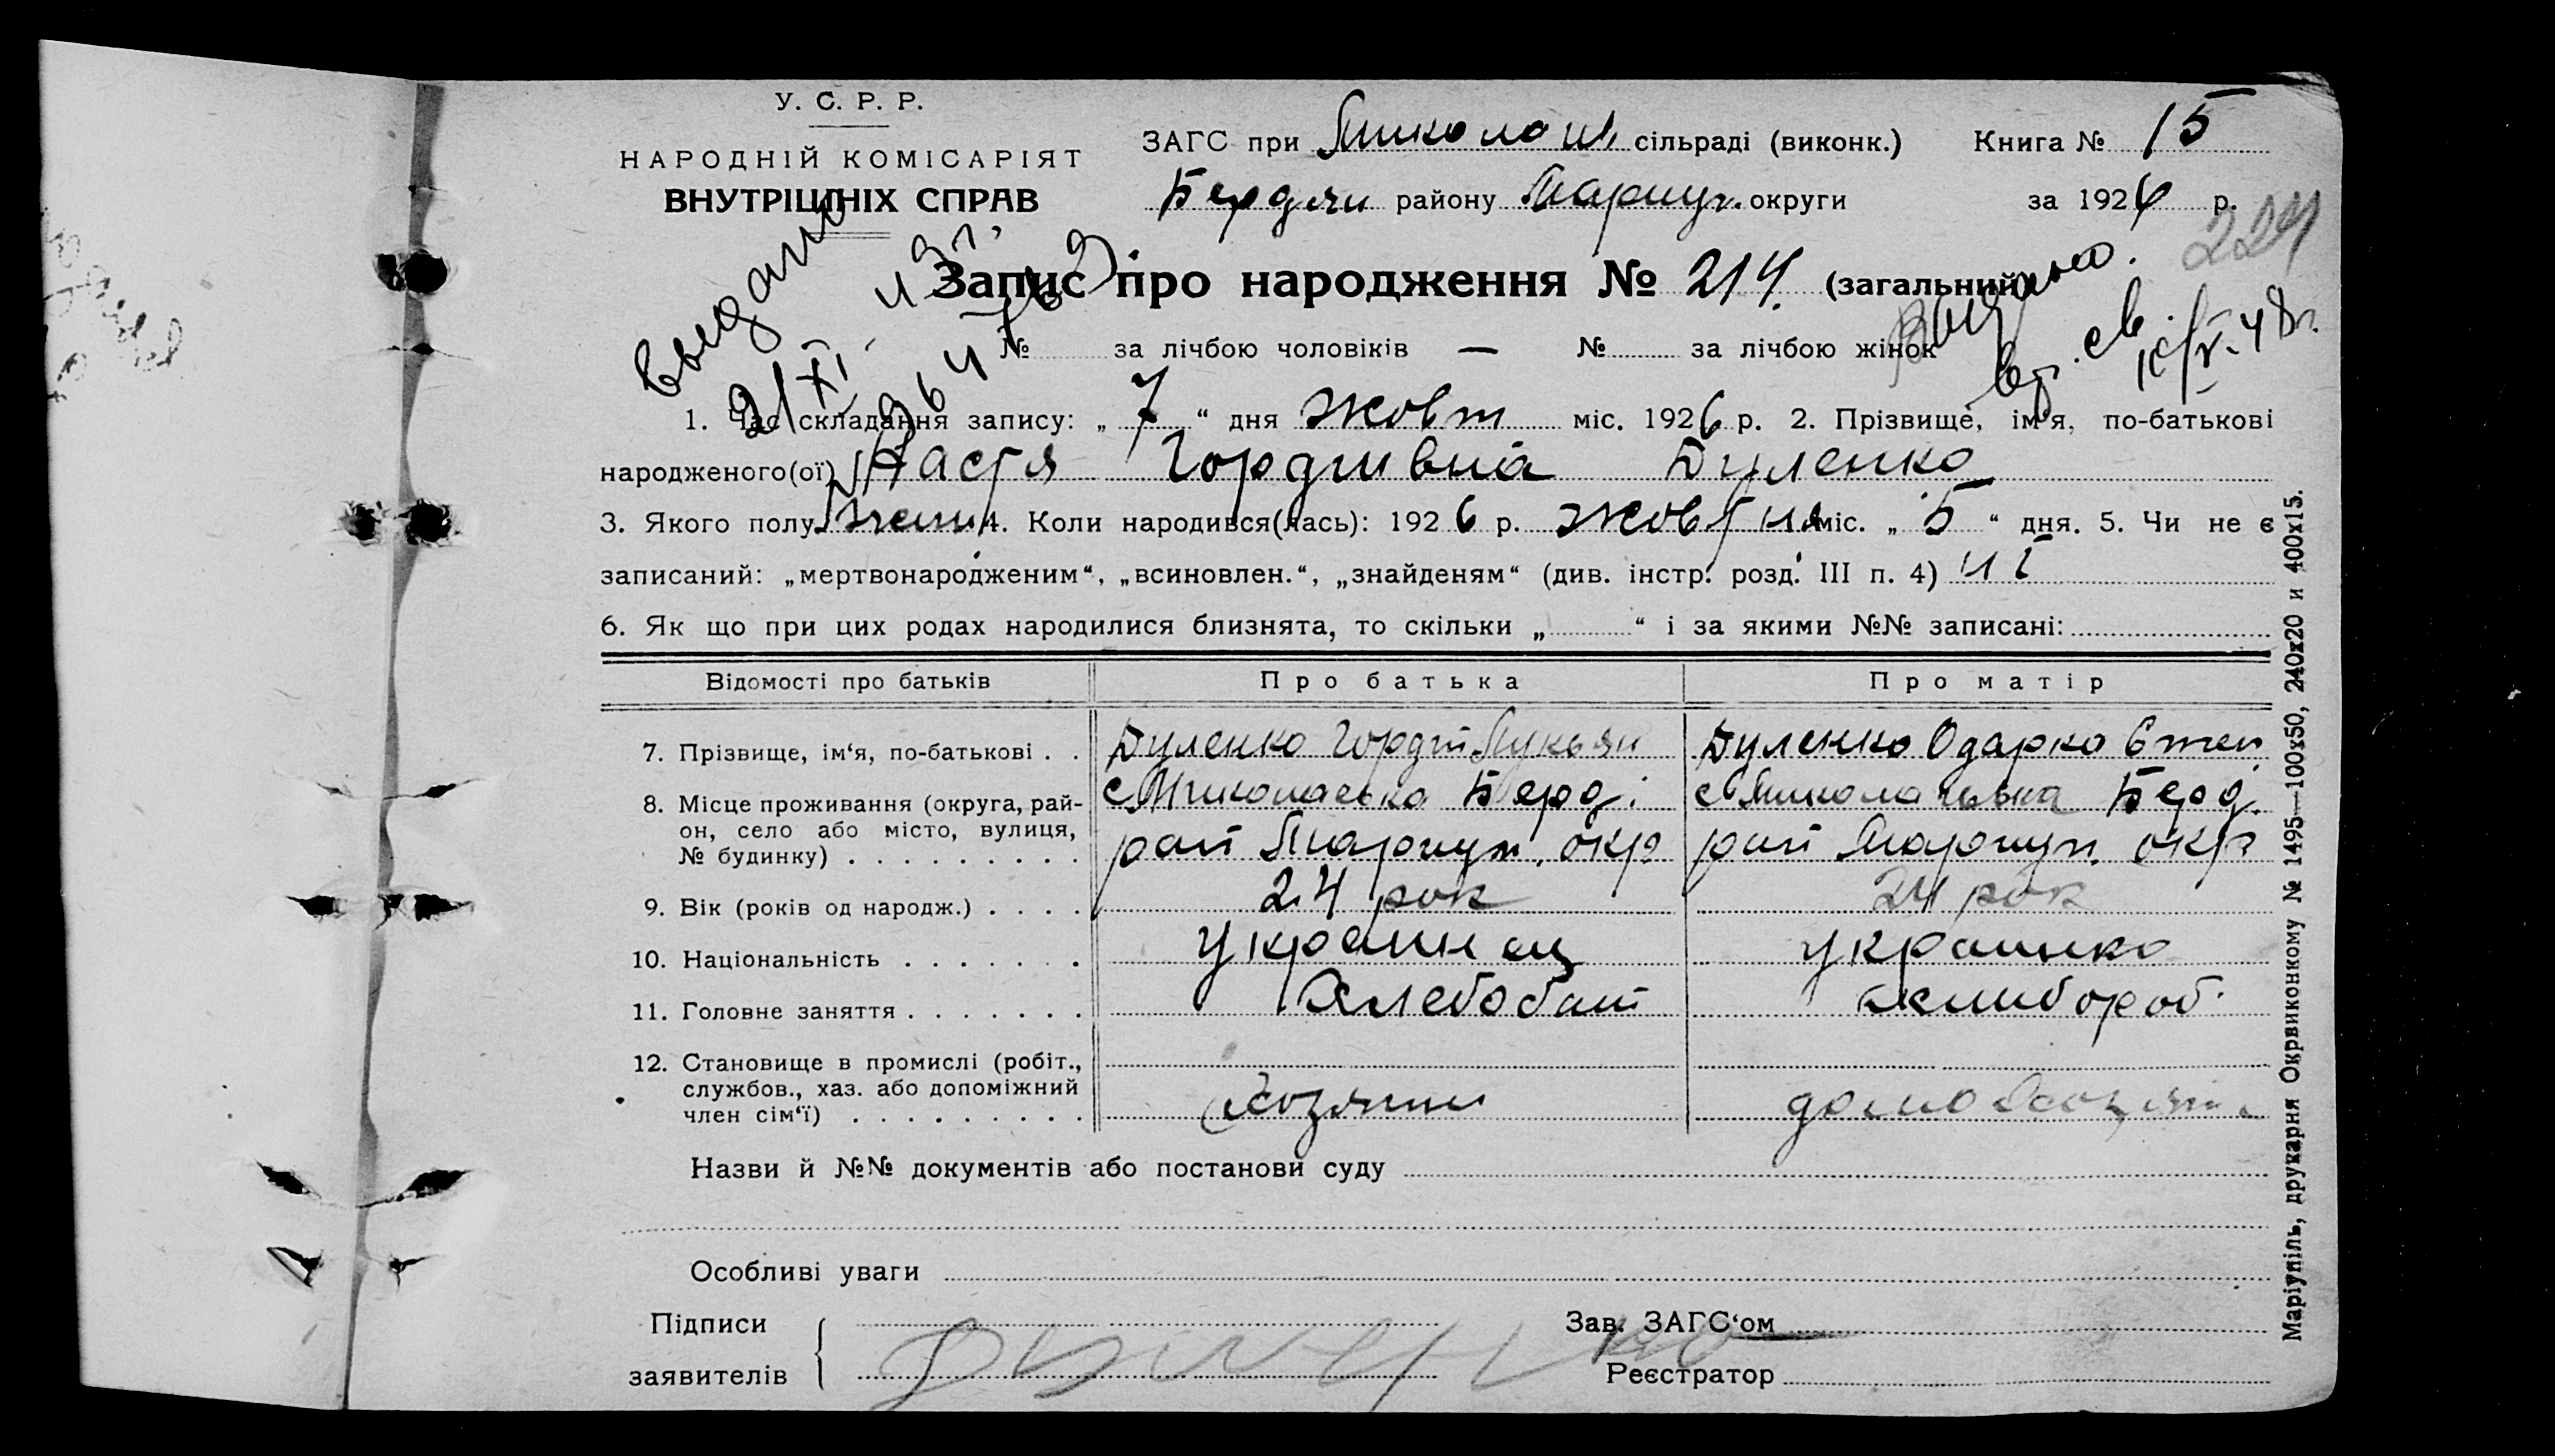 У. С. Р. Р.
НАРОДНІЙ КОМІСАРІЯТ
ВНУТРІШНІХ СПРАВ
ЗАГС при Миколаїв сільраді (виконк.) Книга № 15
Бердян району Маріуп. округи за 1926 р.
224
Запис про народження № 214. (загальний)
Выдано
21/XI
Выдано.
№ за лічбою чоловіків — № за лічбою жінок
1. Час складання запису: „ 7 “ дня Жовт міс. 1926 р. 2. Прізвище, ім‘я, по-батькові
народженого(ої) Настя Гордіївна Дуленко
3. Якого полу Жін 4. Коли народився(лась): 1926 р. Жовтня міс. „ 5 “ дня. 5. Чи не є
записаний: „мертвонародженим“, „всиновлен.“, „знайденям“ (див. інстр. розд. III п. 4) ні
6. Як що при цих родах народилися близнята, то скільки „ “ і за якими №№ записані:
Відомості про батьків Про батька Про матір
7. Прізвище, ім‘я, по-батькові . . Дуленко Гордій Лукьян Дуленко Одарка Степ
8. Місце проживання (округа, рай- с Миколаевка Берд. с Миколаевка Берд.
он, село або місто, вулиця,
№ будинку) . . . . . . . . . рай Маріуп. окр рай Маріуп. окр
9. Вік (років од народж.) . . . . 24 рок 24 рок
10. Національність . . . . . . . украинец украинка
11. Головне заняття . . . . . . . Хлебобаш хлибороб.
12. Становище в промислі (робіт.,
службов., хаз. або допоміжний
член сім‘ї) . . . . . . . . . Хозяин домохозяй.
Назви й №№ документів або постанови суду
Особливі уваги
Підписи
заявителів Дуленко
Зав. ЗАГС‘ом
Реєстратор
Маріупіль, друкарня Окрвиконкому № 1495—100х50, 240х20 и 400х15.